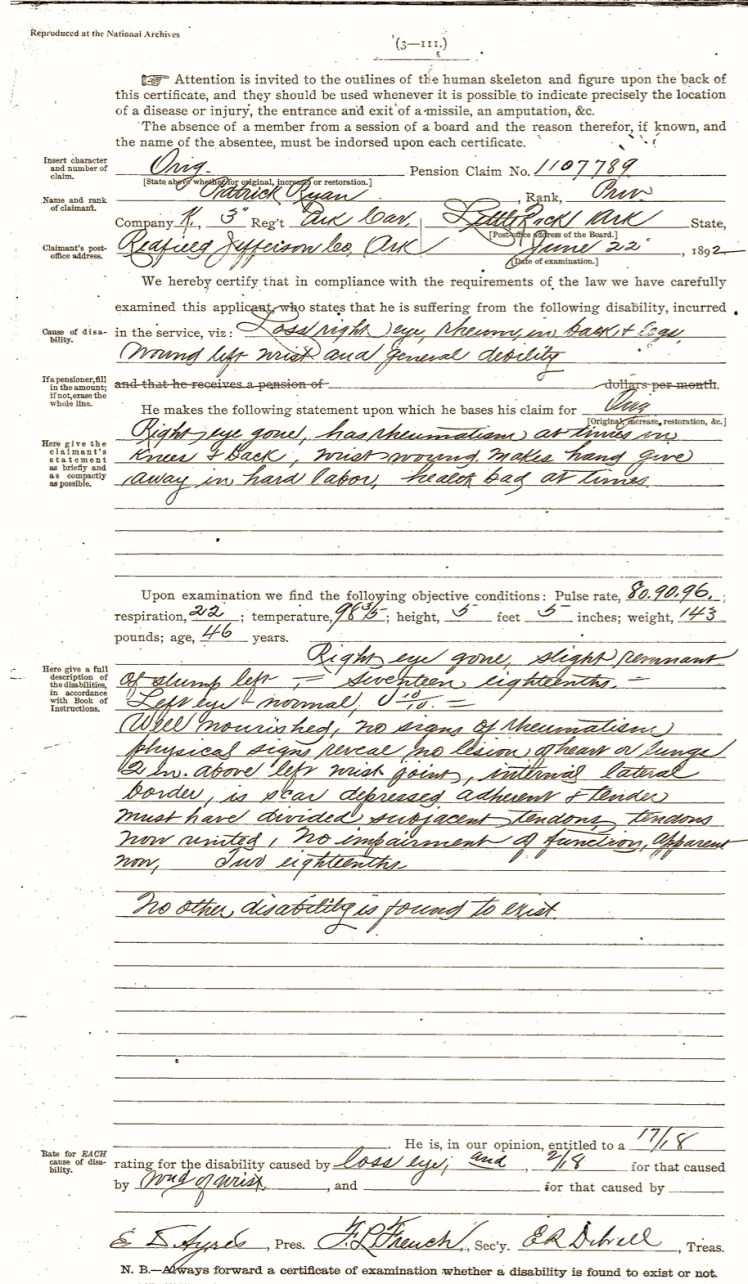 Reproduced at the National Archives
(3—111.)
☞ Attention is invited to the outlines of the human skeleton and figure upon the back of
this certificate, and they should be used whenever it is possible to indicate precisely the location
of a disease or injury, the entrance and exit of a missile, an amputation, &c.
The absence of a member from a session of a board and the reason therefor, if known, and
the name of the absentee, must be indorsed upon each certificate.
Insert character and number of claim.
Orig. Pension Claim No. 1107789
[State above whether for original, increase or restoration.]
Name and rank of claimant.
Patrick Ryan, Rank, Priv.
Company K, 3" Reg't Ark Cav, Little Rock Ark State,
[Post-office address of the Board.]
Claimant's post-office address.
Redfield Jefferson Co, Ark June 22, 1892
[Date of examination.]
We hereby certify that in compliance with the requirements of the law we have carefully
examined this applicant, who states that he is suffering from the following disability, incurred
Cause of disability.
in the service, viz: Loss right eye, rheum, in back & Legs,
Wound left wrist and general debility
If a pensioner, fill in the amount; if not, erase the whole line.
and that he receives a pension of dollars per month.
He makes the following statement upon which he bases his claim for Orig
[Original, increase, restoration, &c.]
Here give the claimant's statement as briefly and as compactly as possible.
Right eye gone, has rheumatism at times in
Knees & back, wrist wound makes hand give
away in hard labor, health bad at times.
Upon examination we find the following objective conditions: Pulse rate, 80.90.96.;
respiration, 22; temperature, 98 3/5; height, 5 feet 5 inches; weight, 143
pounds; age, 46 years.
Here give a full description of the disabilities, in accordance with Book of Instructions.
Right eye gone, slight remnant
of stump left = seventeen eighteenths. =
Left eye - normal, 10/10. =
Well nourished, no signs of rheumatism
physical signs reveal no lision of heart or lungs
2 in. above left wrist joint, internal lateral
border, is scar depressed adherent & tender
must have divided subjacent tendons, tendons
now united, no impairment of function, apparent
now, Two eighteenths
No other disability is found to exist.
He is, in our opinion, entitled to a 17/18
Rate for EACH cause of disability.
rating for the disability caused by loss eye, and, 2/18 for that caused
by Wnd of wrist, and for that caused by
E D. Ayres, Pres. F. L. French, Sec'y. E R Dibrell, Treas.
N. B.—Always forward a certificate of examination whether a disability is found to exist or not.